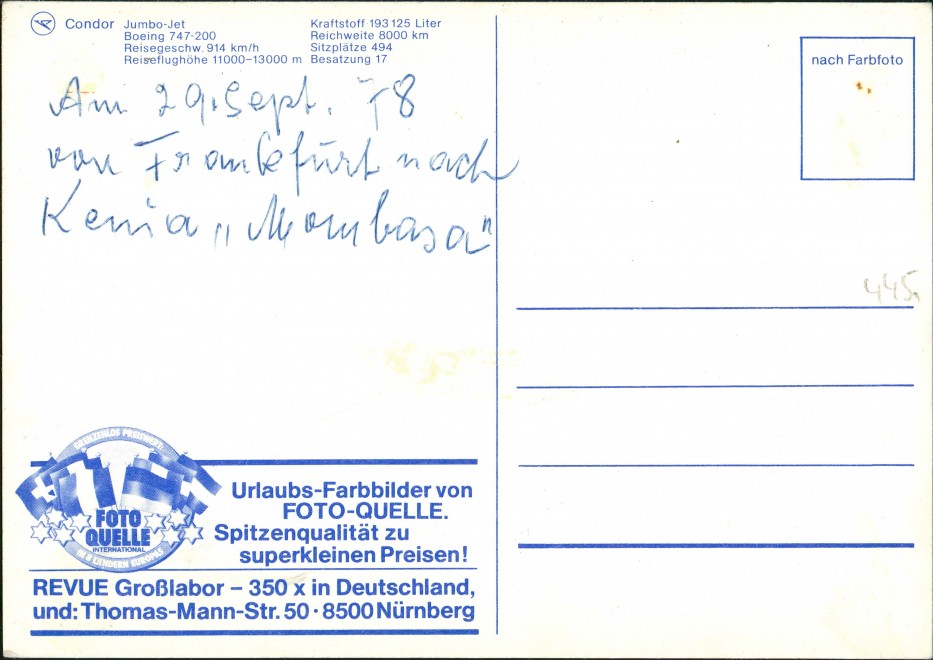 Condor Jumbo-Jet
Boeing 747-200
Reisegeschw. 914 km/h
Reiseflughöhe 11000–13000 m
Kraftstoff 193125 Liter
Reichweite 8000 km
Sitzplätze 494
Besatzung 17
nach Farbfoto
Am 29. Sept. 78
von Frankfurt nach
Kenia „Mombasa"
445.
FOTO
QUELLE
INTERNATIONAL
Urlaubs-Farbbilder von
FOTO-QUELLE.
Spitzenqualität zu
superkleinen Preisen!
REVUE Großlabor – 350 x in Deutschland,
und: Thomas-Mann-Str. 50 · 8500 Nürnberg